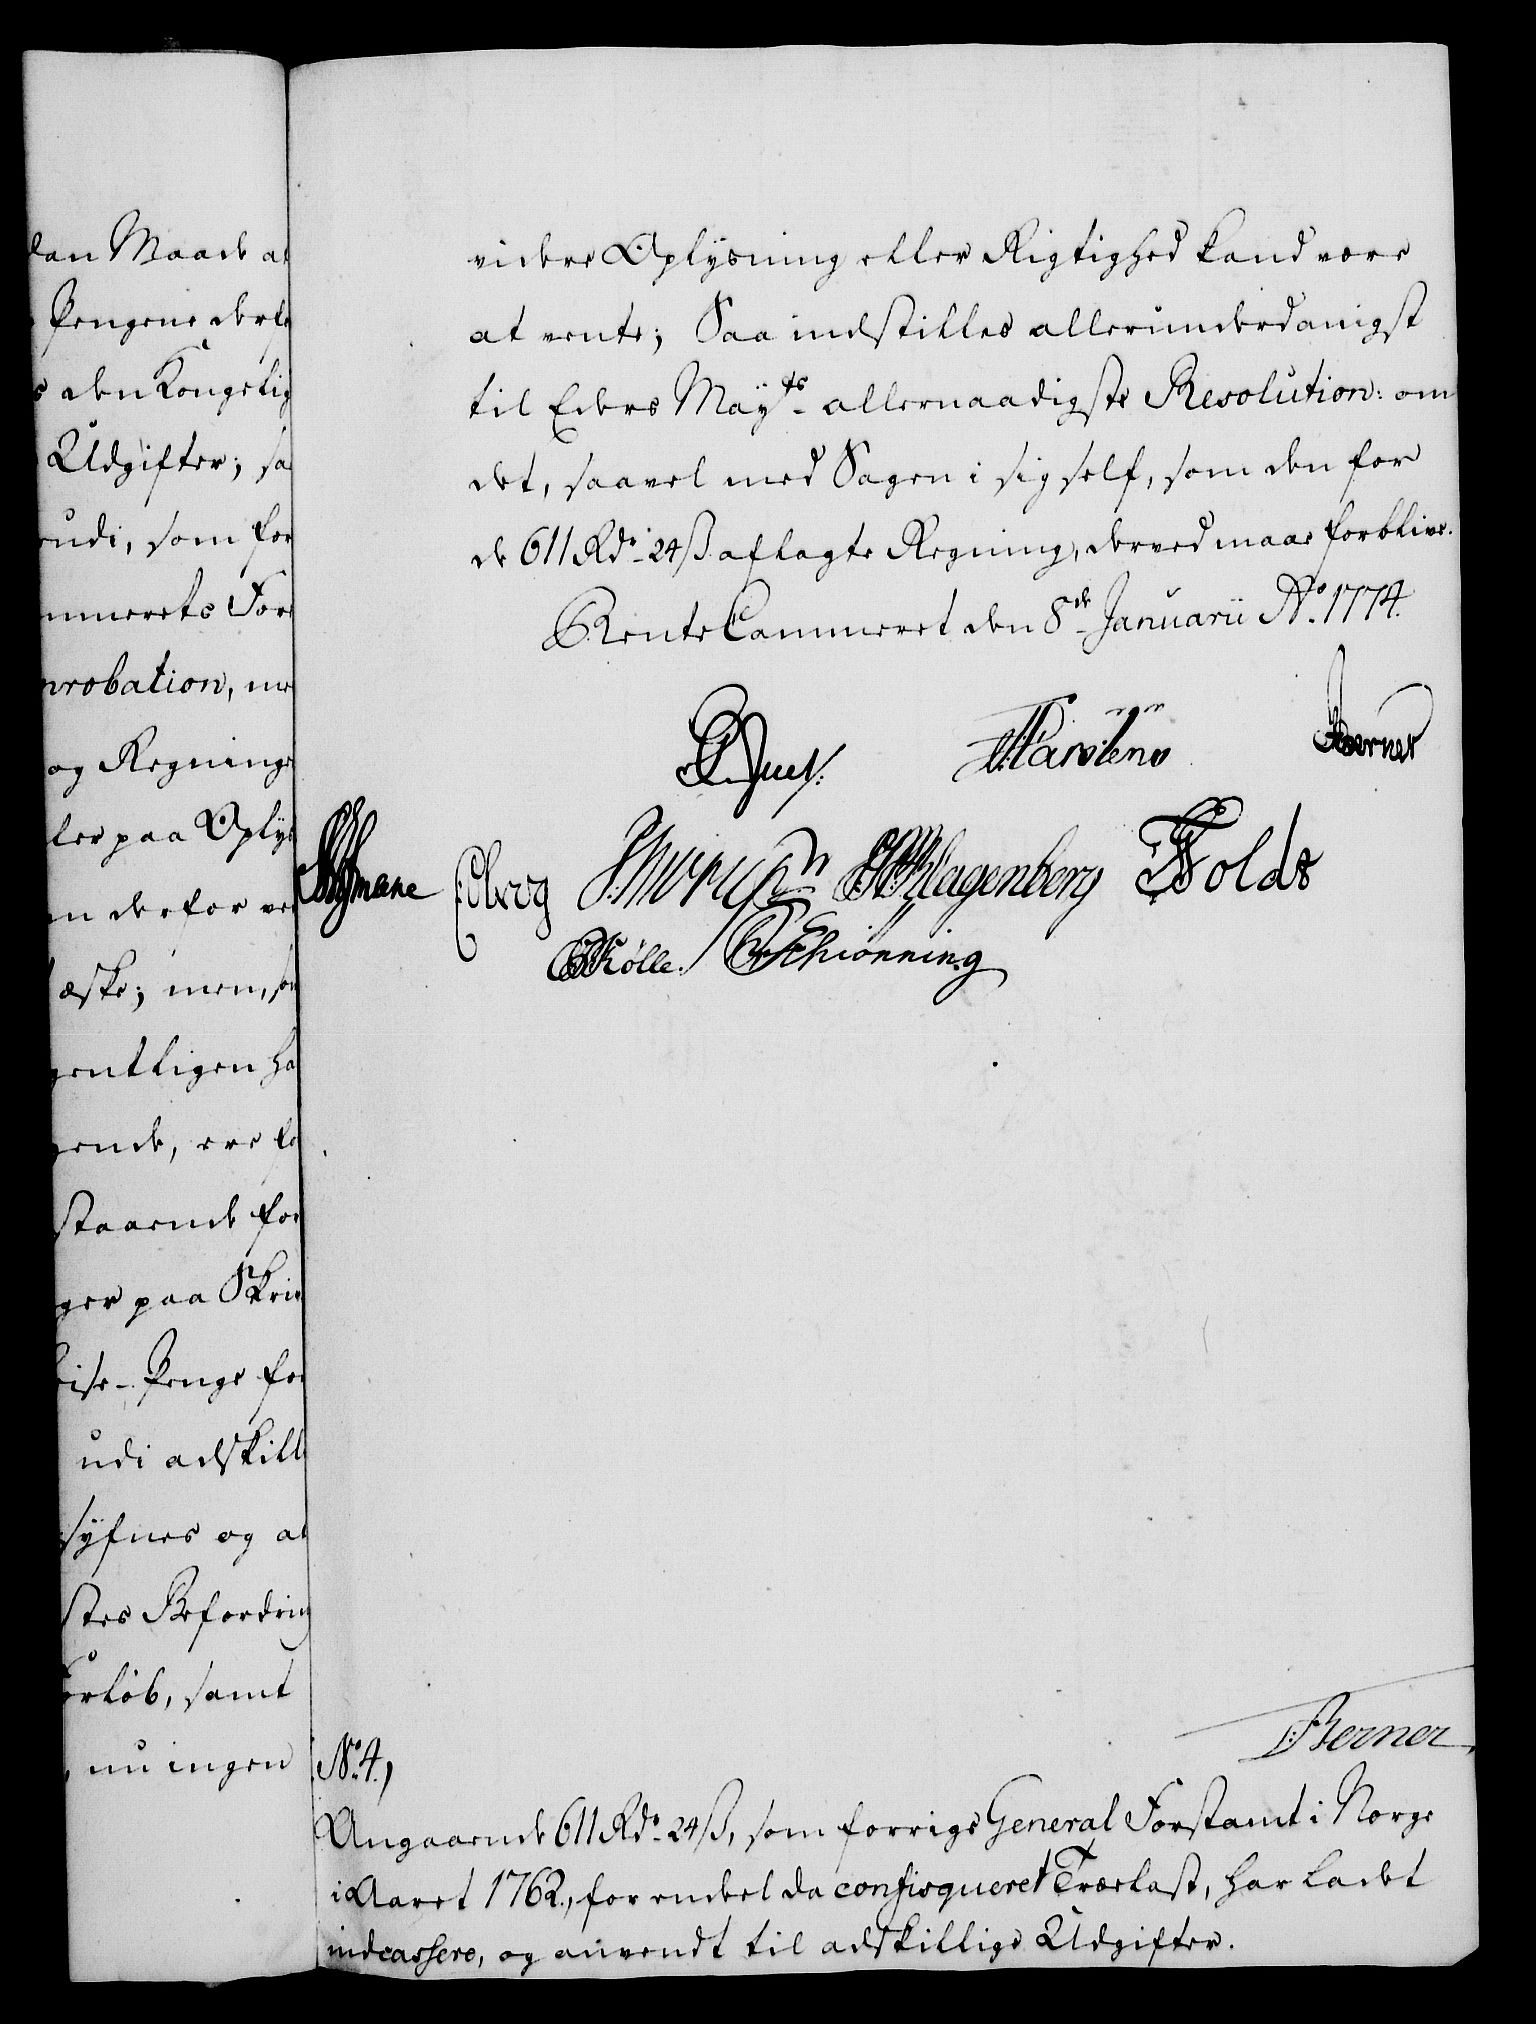 dan Maade at
Pengene derfo
den Kongelig
Udgifter; sa
udi, som for
mmerets For
probation, me
og Regninge
ler paa Oplys
en derfor ve
æske; men, so
gentligen ha
gende, ere fo
staaende for
ger paa Skri
Reise-Penge for
udi adskill
syfnes og at
stes Befordring
orløb, samt
nu ingen
videre Oplysning eller Rigtighed kand være
at vente; Saa indstilles allerunderdanigst
til Eders Mayts allernaadigste Resolution: om
det, saavel med Sagen i sig self, som den for
de 611 Rdr 24 ß aflagte Regning, derved maae forblive.
RenteCammeret den 8de Januarii Ao 1774.
Juel.
egen
Carstens
Berner
Klagenberg Holdt
Rølle. Schiønning
Berner
No 4,
Angaaende 611 Rdr 24 ß, som forrige General Forstamt i Norge
i Aaret 1762, for endeel da confisqueret Trælast, har ladet
indcassere, og anvendt til adskillige Udgifter.